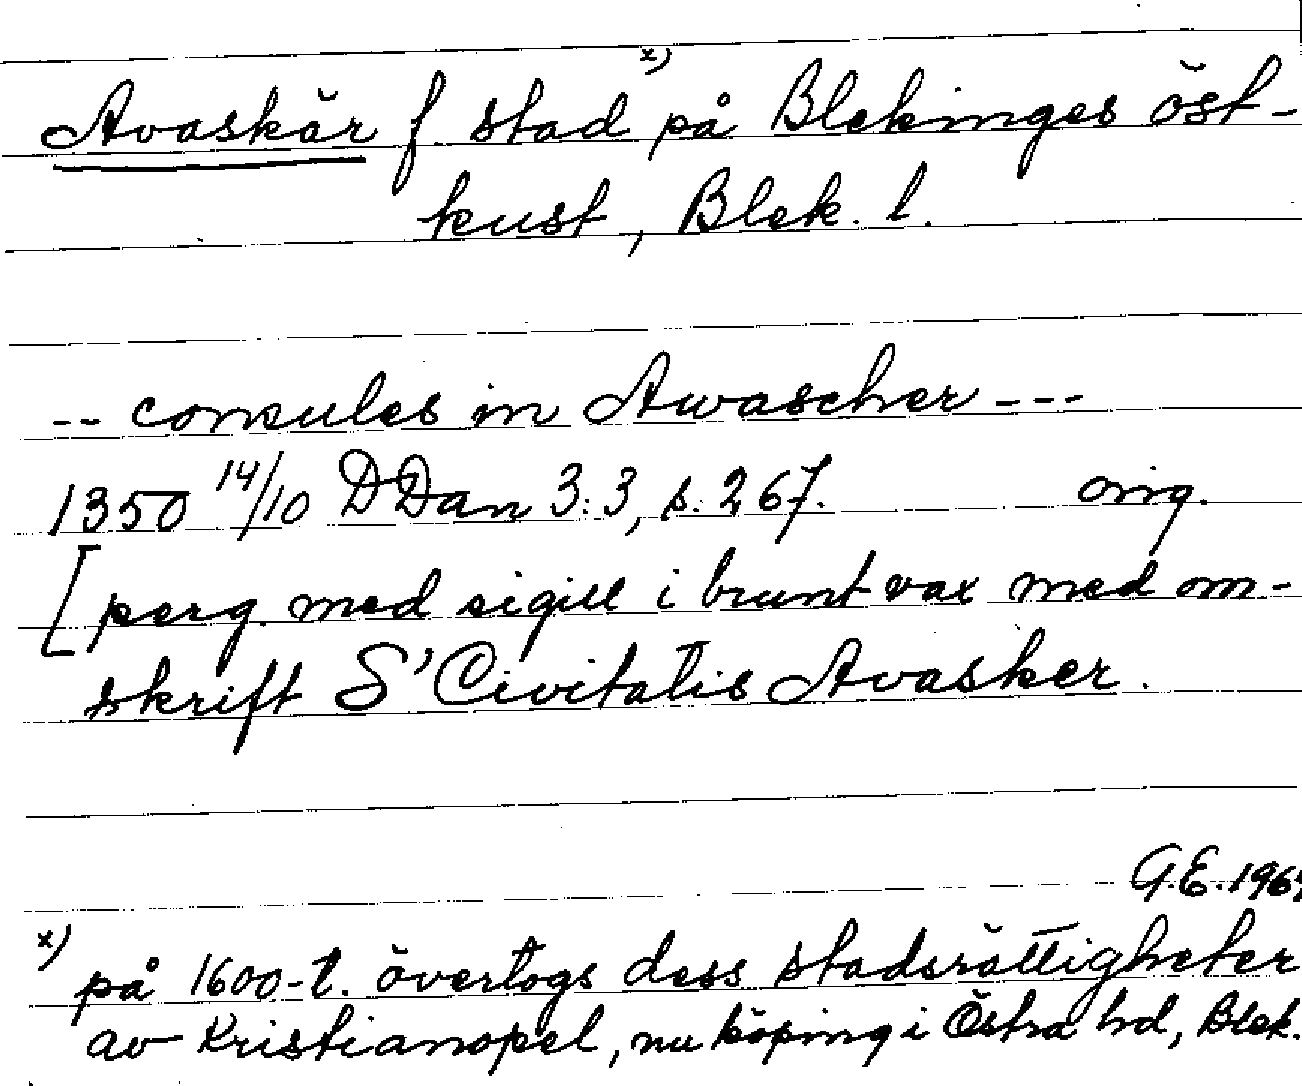 Avaskär f stad x) på Blekinges öst-
kust, Blek. l.
-- consules in Awascher ---
1350 14/10 DDan 3:3, s. 267. orig.
[perg. med sigill i brunt vax med om-
skrift S' Civitatis Avasker.
G.E. 196
x) på 1600-t. övertogs dess stadsrättigheter
av Kristianopel, nu köping i Östra hd, Blek.